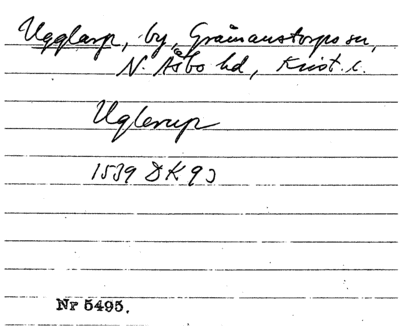 Ugglarp, by, Gråmanstorps sn,
N. Åsbo hd, Krist. l.
Uglerup
1539 DK 93
Nr 5495.